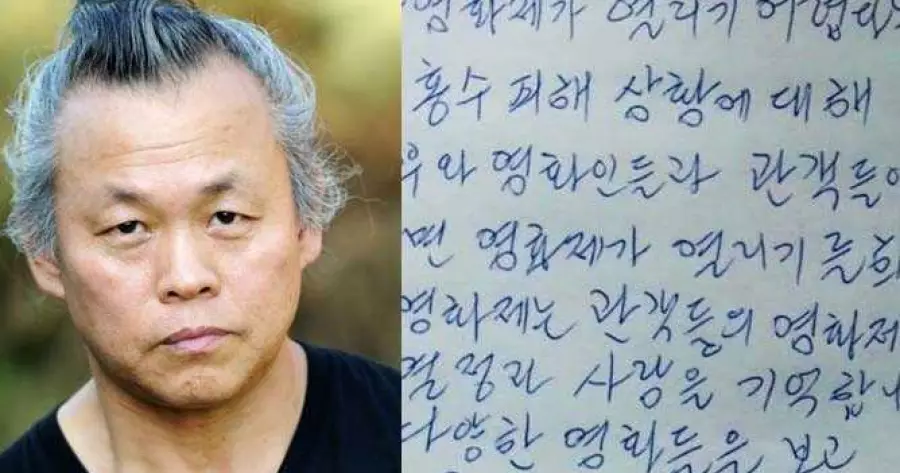 영화제가 열리기 어렵다
홍수 피해 상황에 대해
우와 영화인들과 관객들이
면 영화제가 열리기를 희
영화제는 관객들의 영화제
열정과 사랑을 기억합니
다양한 영화들을 보고